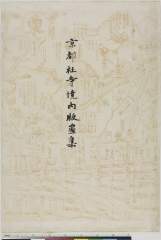 京都社寺境内版畫集